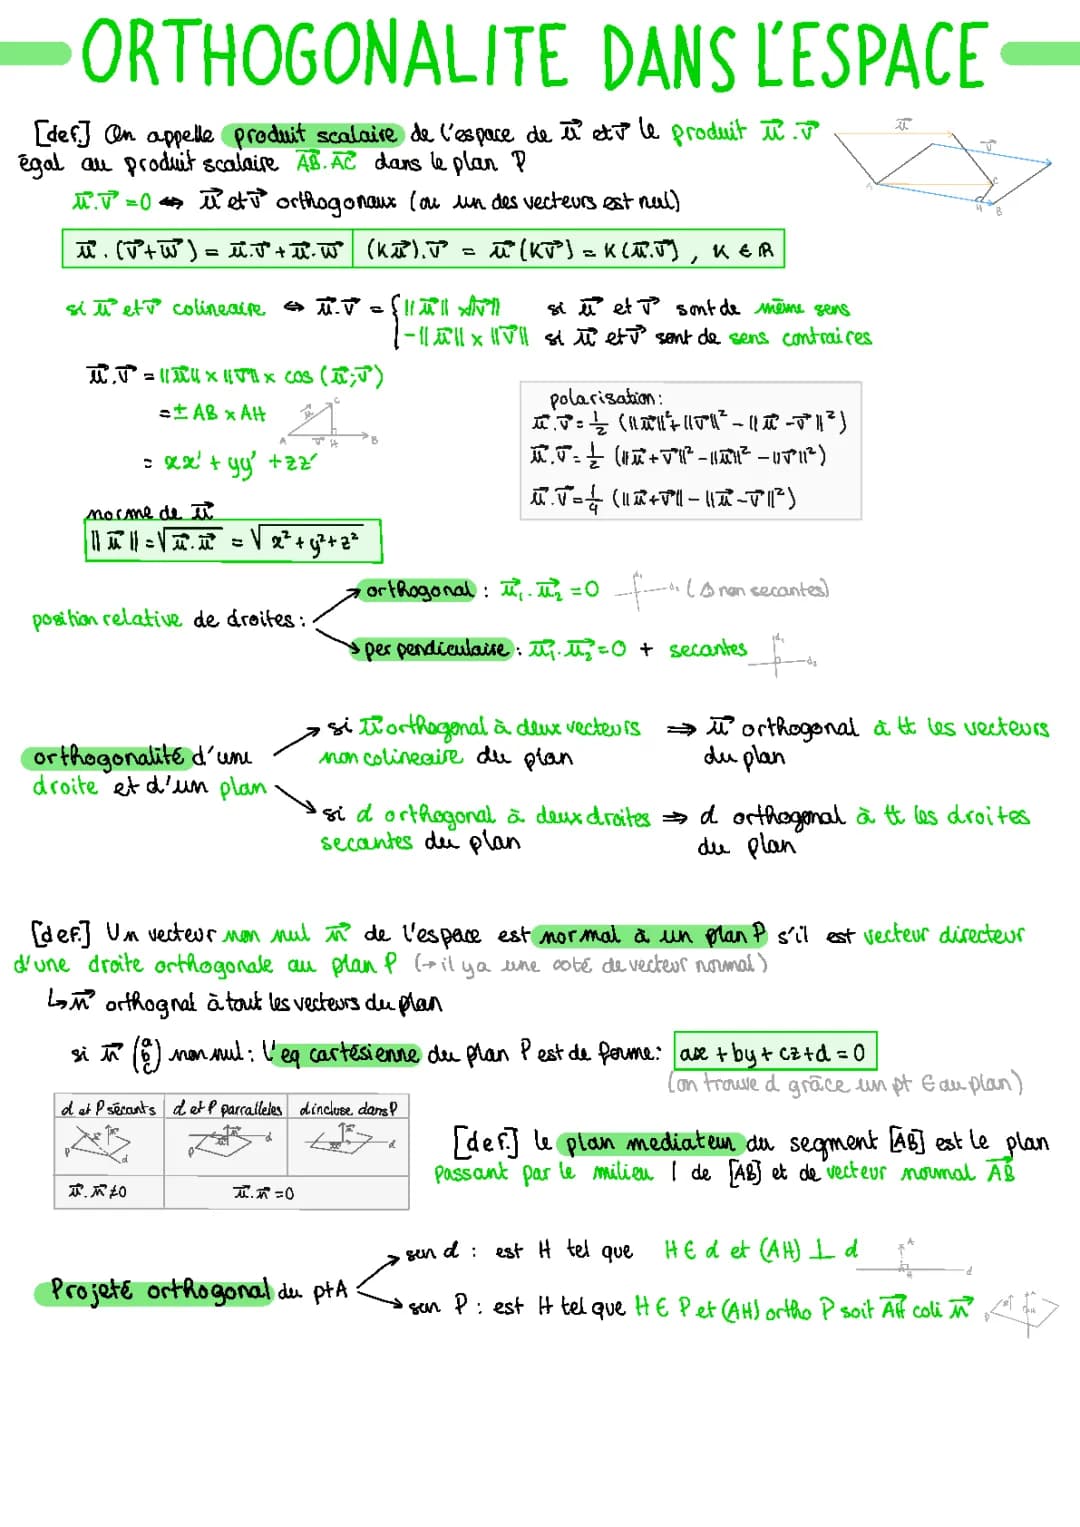 ORTHOGONALITE DANS L'ESPACE
[def.] On appelle produit scalaire de l'espace de u⃗ et v⃗ le produit u⃗.v⃗
égal au produit scalaire AB⃗.AC⃗ dans le plan P
u⃗.v⃗ = 0 ⇔ u⃗ et v⃗ orthogonaux (ou un des vecteurs est nul)
u⃗.(v⃗+w⃗) = u⃗.v⃗ + u⃗.w⃗ | (Ku⃗).v⃗ = u⃗(Kv⃗) = K(u⃗.v⃗), K ∈ ℝ
si u⃗ et v⃗ colineaire ⇔ u⃗.v⃗ = { ||u⃗|| x ||v⃗|| si u⃗ et v⃗ sont de même sens
-||u⃗|| x ||v⃗|| si u⃗ et v⃗ sont de sens contraires
u⃗.v⃗ = ||u⃗|| x ||v⃗|| x cos (u⃗;v⃗)
= ± AB x AH
= xx' + yy' + zz'
polarisation:
u⃗.v⃗ = 1/2 (||u⃗||² + ||v⃗||² - ||u⃗ - v⃗||²)
u⃗.v⃗ = 1/2 (||u⃗+v⃗||² - ||u⃗||² - ||v⃗||²)
u⃗.v⃗ = 1/4 (||u⃗+v⃗|| - ||u⃗-v⃗||²)
norme de u⃗
||u⃗|| = √u⃗.u⃗ = √x²+y²+z²
position relative de droites:
orthogonal : u⃗₁.u⃗₂ = 0 (Δ non secantes)
perpendiculaire : u⃗₁.u⃗₂ = 0 + secantes
orthogonalité d'une
droite et d'un plan
si u⃗ orthogonal à deux vecteurs
non colineaire du plan
⇒ u⃗ orthogonal à tt les vecteurs
du plan
si d orthogonal à deux droites
secantes du plan
⇒ d orthogonal à tt les droites
du plan
[def.] Un vecteur non nul n⃗ de l'espace est normal à un plan P s'il est vecteur directeur
d'une droite orthogonale au plan P (→ il y a une ooté de vecteur normal)
↳ n⃗ orthognal à tout les vecteurs du plan
si n⃗ (a b c) non nul : l'eq cartésienne du plan P est de forme: ax + by + cz + d = 0
(on trouve d grâce un pt ∈ au plan)
d et P sécants | d et P parralleles | d incluse dans P
u⃗.n⃗ ≠ 0 | u⃗.n⃗ = 0
[def.] le plan mediateur du segment [AB] est le plan
passant par le milieu I de [AB] et de vecteur normal AB⃗
Projeté orthogonal du pt A
sur d : est H tel que H ∈ d et (AH) ⊥ d
sur P : est H tel que H ∈ P et (AH) ortho P soit AH⃗ coli n⃗